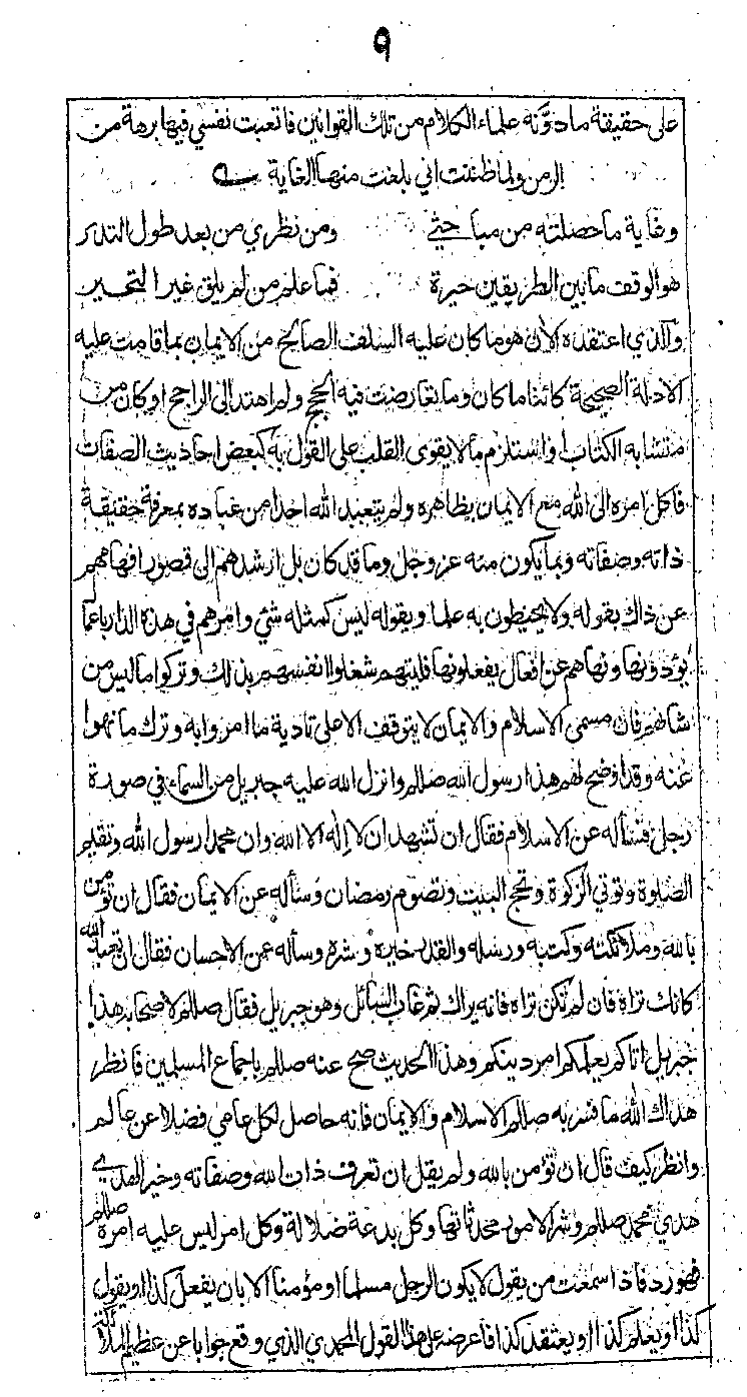 ٩
على حقيقة ما دونه علماء الكلام من تلك القوانين فاتعبت نفسي فيها برهة من
الزمن ولما ظننت اني بلغت منها الغاية
وغاية ما حصلته من مباحثي ومن نظري من بعد طول التدبر
هو الوقف ما بين الطريقين حيرة فما علم من لم يلق غير التحير
والذي اعتقده الآن هو ما كان عليه السلف الصالح من الايمان بما قامت عليه
الادلة الصحيحة كائنا ما كان وما تعارضت فيه الحجج ولم اهتد الى الراجح او كان من
متشابه الكتاب او استلزم ما لا يقوى القلب على القول به كبعض احاديث الصفات
فاكل امره الى الله مع الايمان بظاهره ولم يتعبد الله احدا من عباده بمعرفة حقيقة
ذاته وصفاته وبما يكون منه عز وجل وما قد كان بل ارشدهم الى قصور افهامهم
عن ذاك بقوله ولا يحيطون به علما وبقوله ليس كمثله شئ وامرهم في هذه الدار باعمال
يؤدونها ونهاهم عن افعال يفعلونها فليتهم شغلوا انفسهم بذلك وتركوا ما ليس من
شانهم فان مسمى الاسلام والايمان لا يتوقف الا على تادية ما امروا به وترك ما نهوا
عنه وقد اوضح لهم هذا رسول الله صالم وانزل الله عليه جبريل من السماء في صورة
رجل فسأله عن الاسلام فقال ان تشهد ان لا إله الا الله وان محمدا رسول الله وتقيم
الصلوة وتوتي الزكوة وتحج البيت وتصوم رمضان وسأله عن الايمان فقال ان تؤمن
بالله وملائكته وكتبه ورسله والقدر خيره وشره وسأله عن الاحسان فقال ان تعبد الله
كانك تراه فان لم تكن تراه فانه يراك ثم غاب السائل وهو جبريل فقال صالم لاصحابه هذا
جبريل اتاكم يعلمكم امر دينكم وهذا الحديث صح عنه صالم باجماع المسلمين فانظر
هداك الله ما فسر به صالم الاسلام والايمان فانه حاصل لكل عامي فضلا عن عالم
وانظر كيف قال ان تؤمن بالله ولم يقل ان تعرف ذات الله وصفاته وخير الهدي
هدي محمد صالم وشر الامور محدثاتها وكل بدعة ضلالة وكل امر ليس عليه امره صالم
فهو رد فاذا سمعت من يقول لا يكون الرجل مسلما او مؤمنا الا بان يفعل كذا او يقول
كذا او يعلم كذا او يعتقد كذا فاعرضه على هذا القول المحمدي الذي وقع جوابا عن عظيم الملائكة